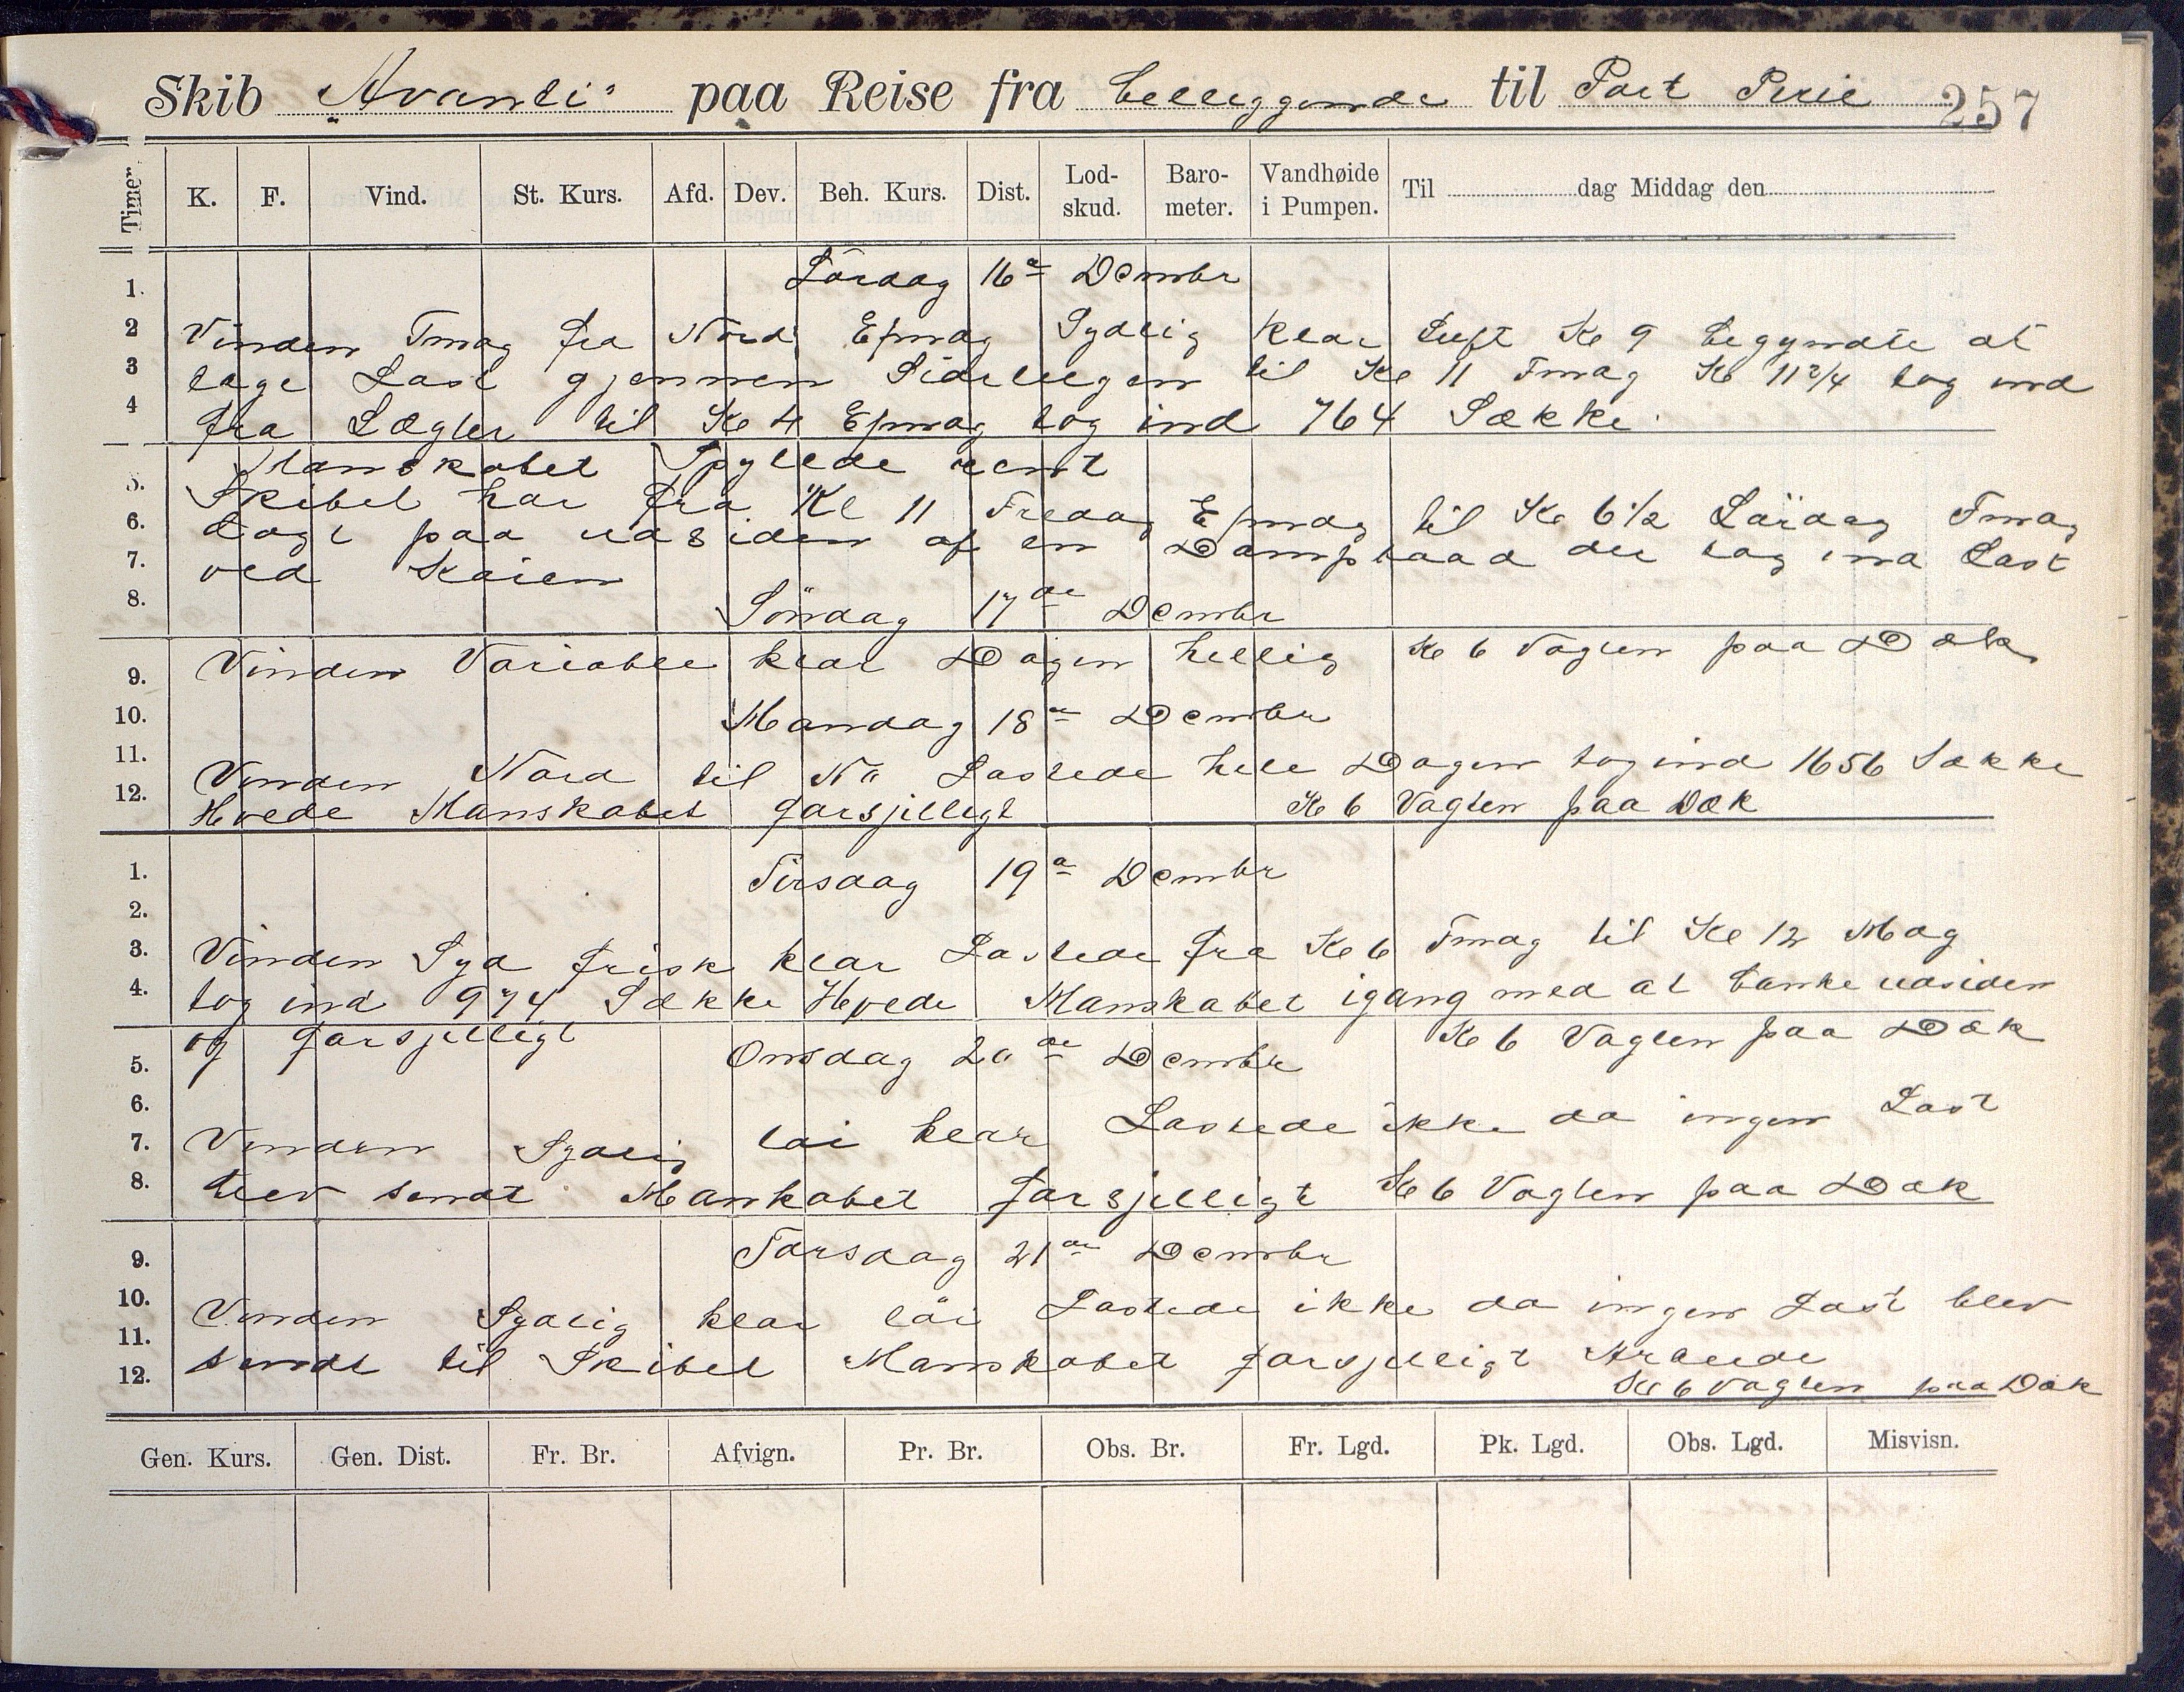 Skib „Avanti" paa Reise fra beliggende til Port Pirie 257
Timer. K. F. Vind. St. Kurs. Afd. Dev. Beh. Kurs. Dist. Lod-skud. Baro-meter. Vandhøide i Pumpen. Til dag Middag den
1. Lördag 16de Dcmbr
2 Vinden Fmag fra Nord Efmag Sydlig klar Luft Kl 9 begyndte at
3 tage Last gjennem Sidelugen til Kl 11 Fmag Kl 11 2/4 tog ind
4 fra Lægter til Kl 4 Efmag tog ind 764 Sække.
Manskabet Spylede rent
5. Skibet har fra Kl 11 Fredag Efmdg til Kl 6 1/2 Lördag Fmag
6. lagt paa udsiden af en Dampbaad der tog ind Last
7. ved Kaien
8. Söndag 17de Dcmbr
9. Vinden Variable klar Dagen hellig Kl 6 Vagten paa Dæk
10. Mandag 18de Dcmbr
11. Vinden Nord til NO Lastede hele Dagen tog ind 1656 Sække
12. Hvede Manskabet forsjelligt Kl 6 Vagten paa Dæk
1. Tirsdag 19de Dcmbr
2.
3. Vinden Syd frisk klar Lastede fra Kl 6 Fmag til Kl 12 Mdag
4. tog ind 974 Sække Hvede Manskabet igang med at banke udsiden
og forsjelligt Kl 6 Vagten paa Dæk
5. Onsdag 20de Dcmbr
6.
7. Vinden Sydlig löi klar Lastede ikke da ingen Last
8. blev sendt Mankabet forsjelligt Kl 6 Vagten paa Dæk
9. Torsdag 21de Dcmbr
10. Vinden Sydlig klar löi Lastede ikke da ingen Last blev
11. sendt til Skibet Manskabet forsjelligt Arbeide
12. Kl 6 Vagten paa Dæk
Gen. Kurs. Gen. Dist. Fr. Br. Afvign. Pr. Br. Obs. Br. Fr. Lgd. Pk. Lgd. Obs. Lgd. Misvisn.